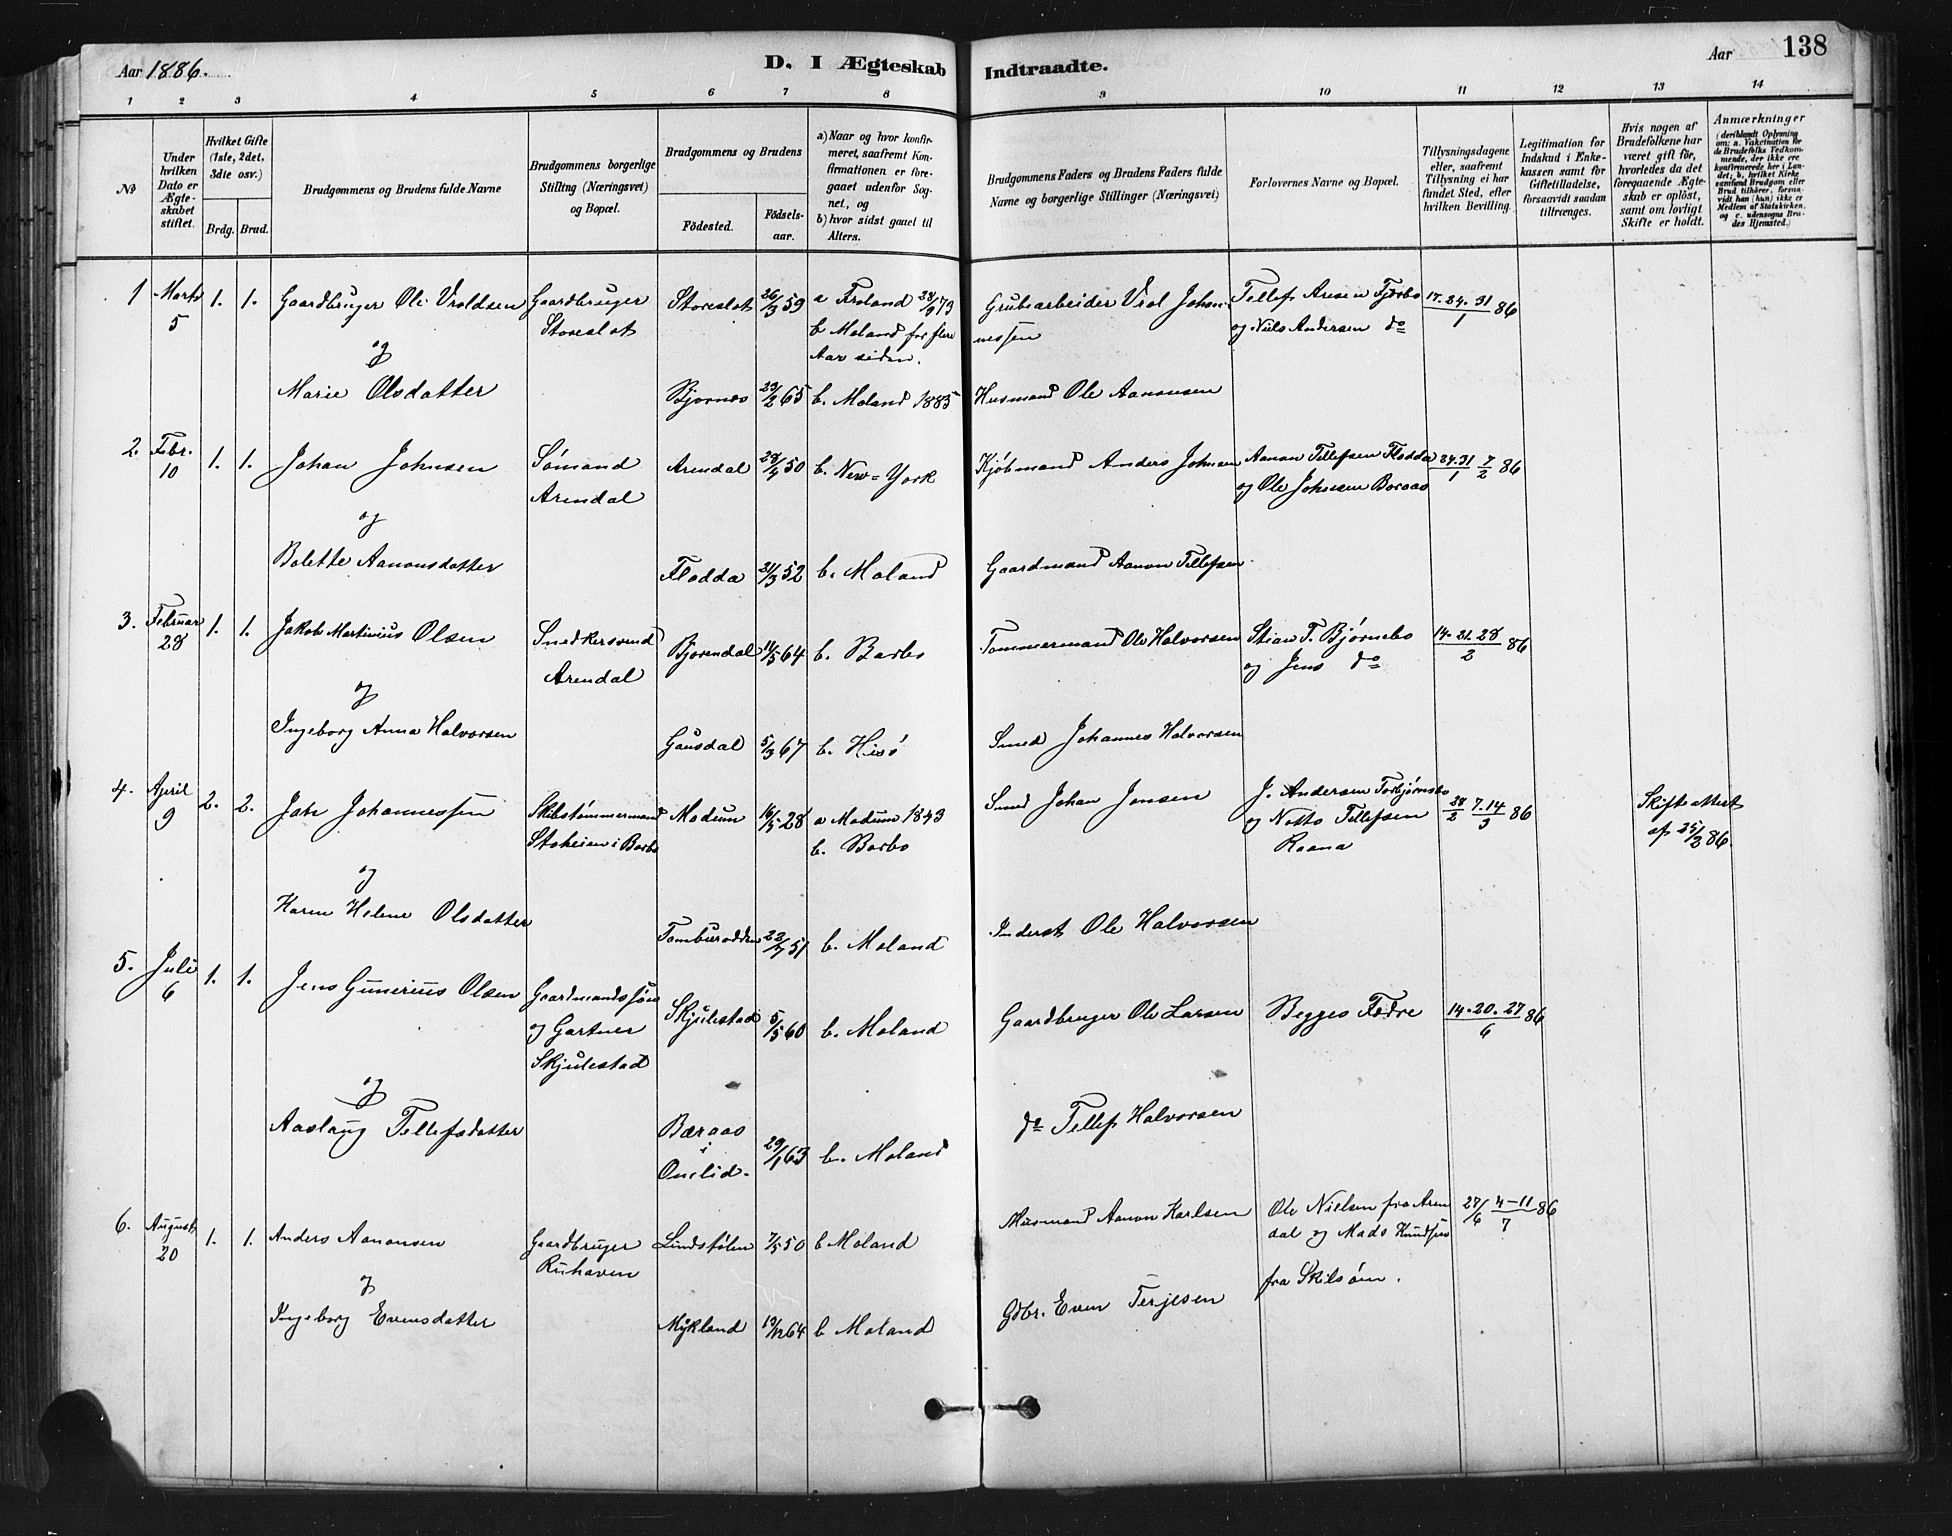 Aar 1886.
D. I Ægteskab Indtraadte.
Aar 138
1 2 3 4 5 6 7 8 9 10 11 12 13 14
No
Under hvilken Dato er Ægteskabet stiftet.
Hvilket Gifte (1ste, 2det, 3die osv.)
Brdg. Brud.
Brudgommens og Brudens fulde Navne
Brudgommens borgerlige Stilling (Næringsvei) og Bopæl.
Brudgommens og Brudens
Fødested.
Fødselsaar.
a) Naar og hvor konfirmeret, saafremt Konfirmationen er foregaaet udenfor Sognet, og
b) hvor sidst gaaet til Alters.
Brudgommens Faders og Brudens Faders fulde Navne og borgerlige Stillinger (Næringsvei)
Forlovernes Navne og Bopæl.
Tillysningsdagene eller, saafremt Tillysning ei har fundet Sted, efter hvilken Bevilling.
Legitimation for Indskud i Enkekassen samt for Giftetilladelse, forsaavidt saadan tiltrænges.
Hvis nogen af Brudefolkene har været gift før, hvorledes da det foregaaende Ægteskab er opløst, samt om lovligt Skifte er holdt.
Anmærkninger
(deriblandt Oplysning om: a. Vakcination for de Brudefolks Vedkommende, der ikke ere konfirmerede her i Landet; b. hvilket Kirkesamfund Brudgom eller Brud tilhører, forsaavidt han (hun) ikke er Medlem af Statskirken, og c. udensogns Brudes Hjemsted.)
1 Marts 5 1. 1. Gaardbruger Ole Vroldsen Gaardbruger Storeslot Storeslot 26/3 59 a Froland 28/9 73
b Moland for flere Aar siden.
Grubearbeider Vrol Johannessen
Tellef Aresen Fjørbo og Niels Andersen do
17. 24. 31/1 86
og
Marie Olsdatter Bjornes 23/2 65 b. Moland 1885 Husmand Ole Aanonsen
2. Febr. 10 1. 1. Johan Johnsen Sømand Arendal Arendal 28/4 50 b. New-York Kjøbmand Anders Johnsen
Aanon Tellefsen Flodda og Ole Johnsen Boraas
24. 31/1 7/2 86
og
Bolette Aanonsdatter Flodda 21/3 52 b. Moland Gaardmand Aanon Tellefsen
3. Februar 28 1. 1. Jakob Martinius Olsen Snedkersvend Arendal Bjorendal 11/5 64 b. Barbo Tømmermand Ole Halvorsen
Stian T. Bjørnebo og Jens do
14. 21. 28/2 86
og
Ingeborg Anna Halvorsen Gausdal 5/3 67 b. Hisö Smed Johannes Halvorsen
4. April 9 2. 2. Jahn Johannessen Skibstømmermand Stoheien i Barbo Modum 16/5 28 a Modum 1843
b. Barbo
Smed Johan Jensen
J. Andersen Torbjørnsbo og Notto Tellefsen Raana
28/2 7.14/3 86
Skifteattest af 25/2 86.
og
Karen Helene Olsdatter Tamburodden 22/7 51 b. Moland Inderst Ole Halvorsen
5. Juli 6 1. 1. Jens Gunerius Olsen Gaardmandssøn og Gartner Skjulestad Skjulestad 5/5 60 b. Moland Gaardbruger Ole Larsen Begges Fædre 14. 20. 27/6 86
og
Aaslaug Tellefsdatter Bæraas i Omlid. 29/1 63 b. Moland do Tellef Halvorsen
6. August 20 1. 1. Anders Aanonsen Gaardbruger Ruhaven Lindstølen 7/5 50 b Moland Husmand Aanon Karlsen
Ole Nielsen fra Arendal og Mads Knudsen fra Skilsøm.
27/6 4-11/7 86
og
Ingeborg Evensdatter Mykland 19/12 64 b Moland Gdbr. Even Terjesen